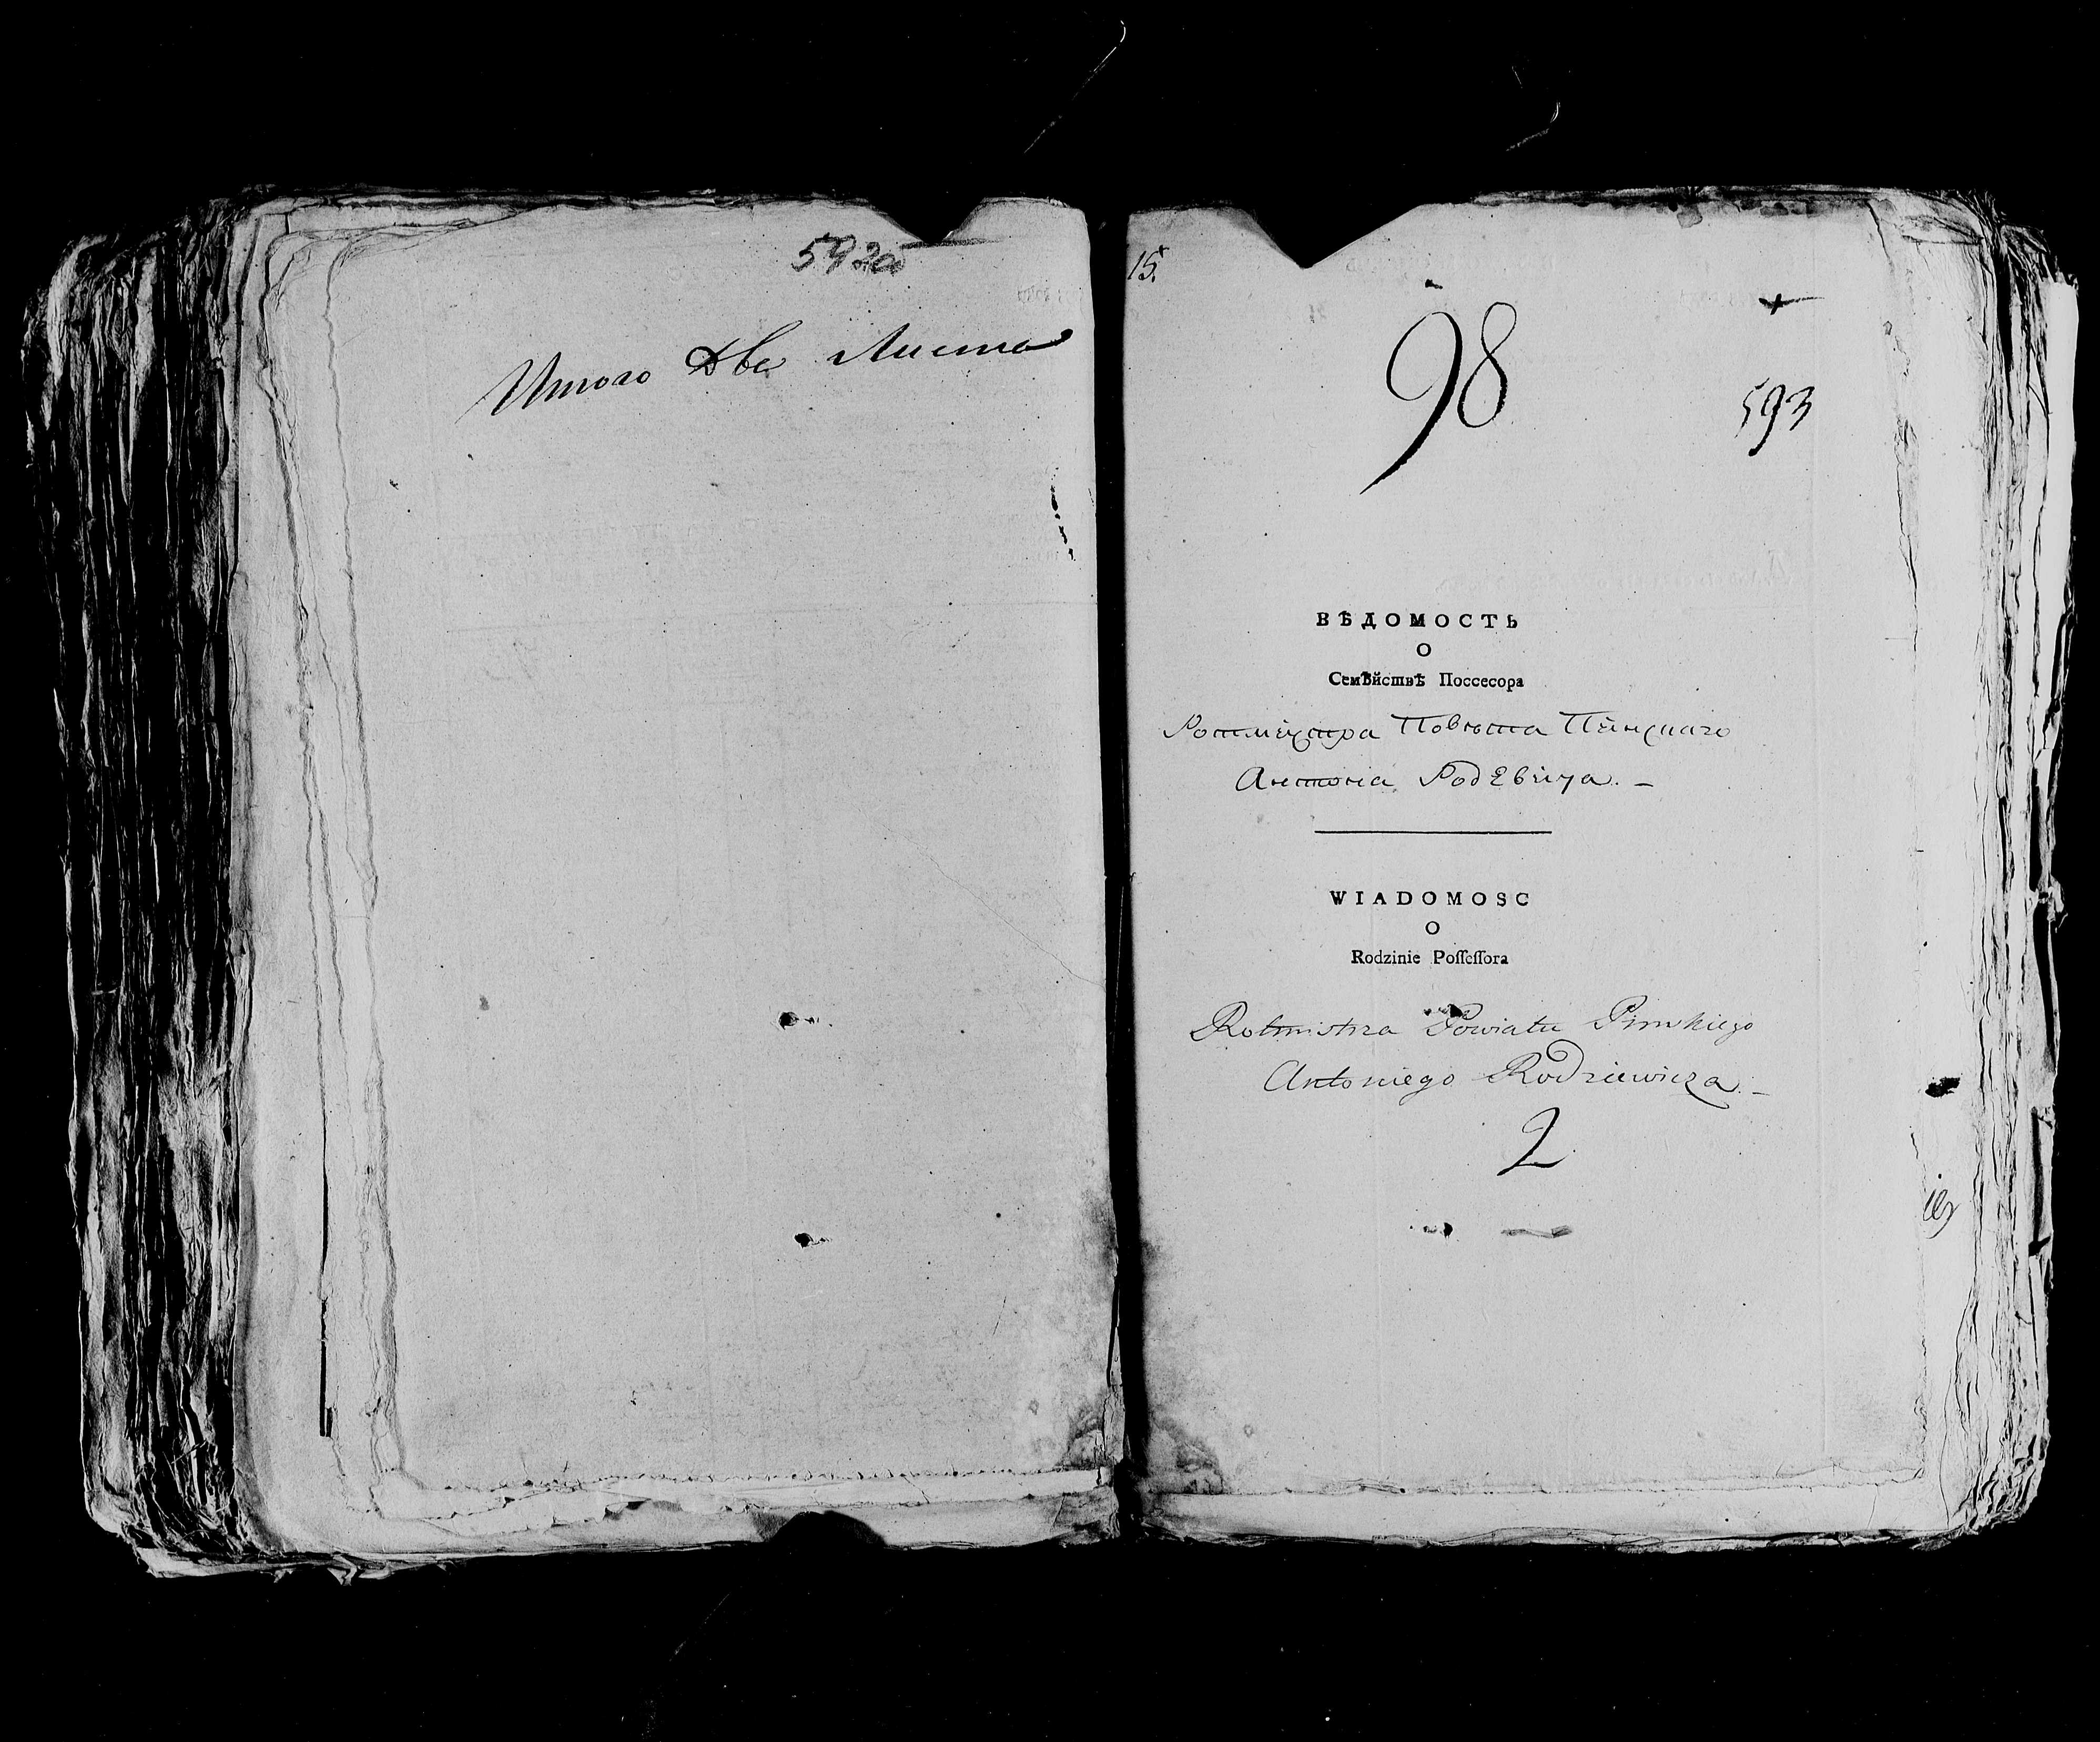 592a
Итого Два Листа
15.
98
593
ВѢДОМОСТЬ
О
Семѣйствѣ Поссесора
Ротмистра Повѣта Пинскаго
Антонїа Родзевича. –
WIADOMOSC
O
Rodzinie Poſſeſſora
Rotmistrza Powiatu Pinskiego
Antoniego Rodziewicza. –
2